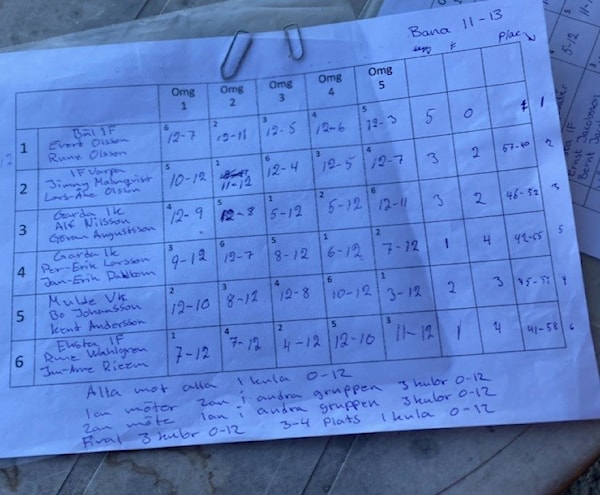 Bana 11-13
Omg 1 Omg 2 Omg 3 Omg 4 Omg 5 F plac
1 Bäl IF
Evert Olsson
Rune Olsson
6 12-7 2 12-11 3 12-5 4 12-6 5 12-3 5 0 1
2 IF Varpa
Jimmy Malmqvist
Lars-Åke Olsson
5 10-12 1 11-12 6 12-4 3 12-5 4 12-7 3 2 57-40 2
3 Garda Ik
Alf Nilsson
Göran Augustsson
4 12-9 5 12-8 1 5-12 2 5-12 6 12-11 3 2 46-52 3
4 Garda Ik
Per-Erik Larsson
Jan-Erik
3 9-12 6 12-7 5 8-12 1 6-12 2 7-12 1 4 42-55 5
5 Mulde Vk
Bo Johansson
Kent Andersson
2 12-10 3 8-12 4 12-8 6 10-12 1 3-12 2 3 4
6 Eksta IF
Rune Wahlgren
1 7-12 4 7-12 2 4-12 5 12-10 3 11-12 1 4 41-58 6
Alla mot alla 1 kula 0-12
1an möter 2an i andra gruppen 3 kulor 0-12
2an möte 1an i andra gruppen 3 kulor 0-12
Final 3 kulor 0-12 3-4 plats 1 kula 0-12
5-12
Ernst Jacobsson